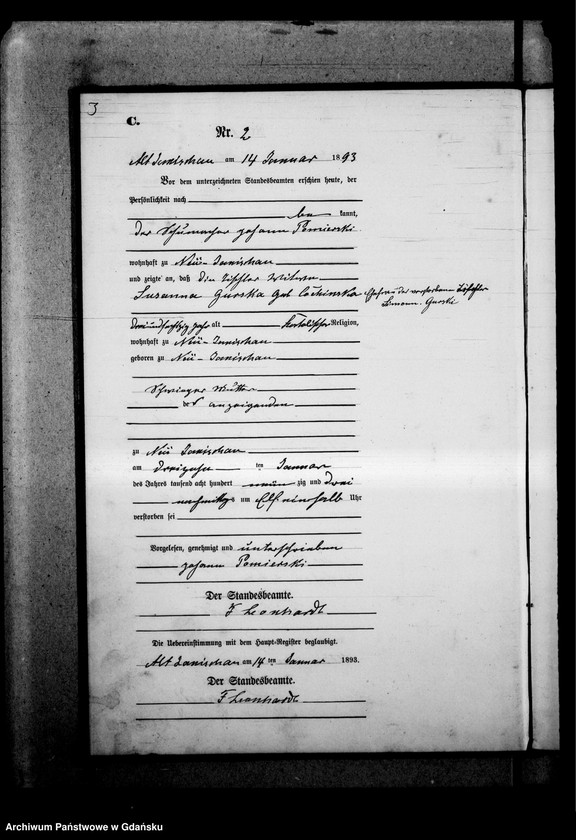 3
C.
Nr. 2
Alt Janischau am 14 Januar 1893
Vor dem unterzeichneten Standesbeamten erschien heute, der
Persönlichkeit nach
be kannt,
der Schumacher Johann Pomierski
wohnhaft zu Neu-Janischau
und zeigte an, daß die Tischler Witwe
Susanna Gurska geb
Ehefrau des verstorbenen Tischler
Gurski
dreiundsechzig Jahr alt katolischer Religion,
wohnhaft zu Neu-Janischau
geboren zu Neu-Janischau
Schwieger Mutter
des anzeigenden
zu Neu Janischau
am dreizehn ten Januar
des Jahres tausend acht hundert neun zig und drei
nachmittags um Elf einhalb Uhr
verstorben sei
Vorgelesen, genehmigt und unterschrieben
Johann Pomierski
Der Standesbeamte.
F Leonhardt
Die Uebereinstimmung mit dem Haupt-Register beglaubigt.
Alt Janischau am 14 ten Januar 1893.
Der Standesbeamte.
F Leonhardt
Archiwum Państwowe w Gdańsku